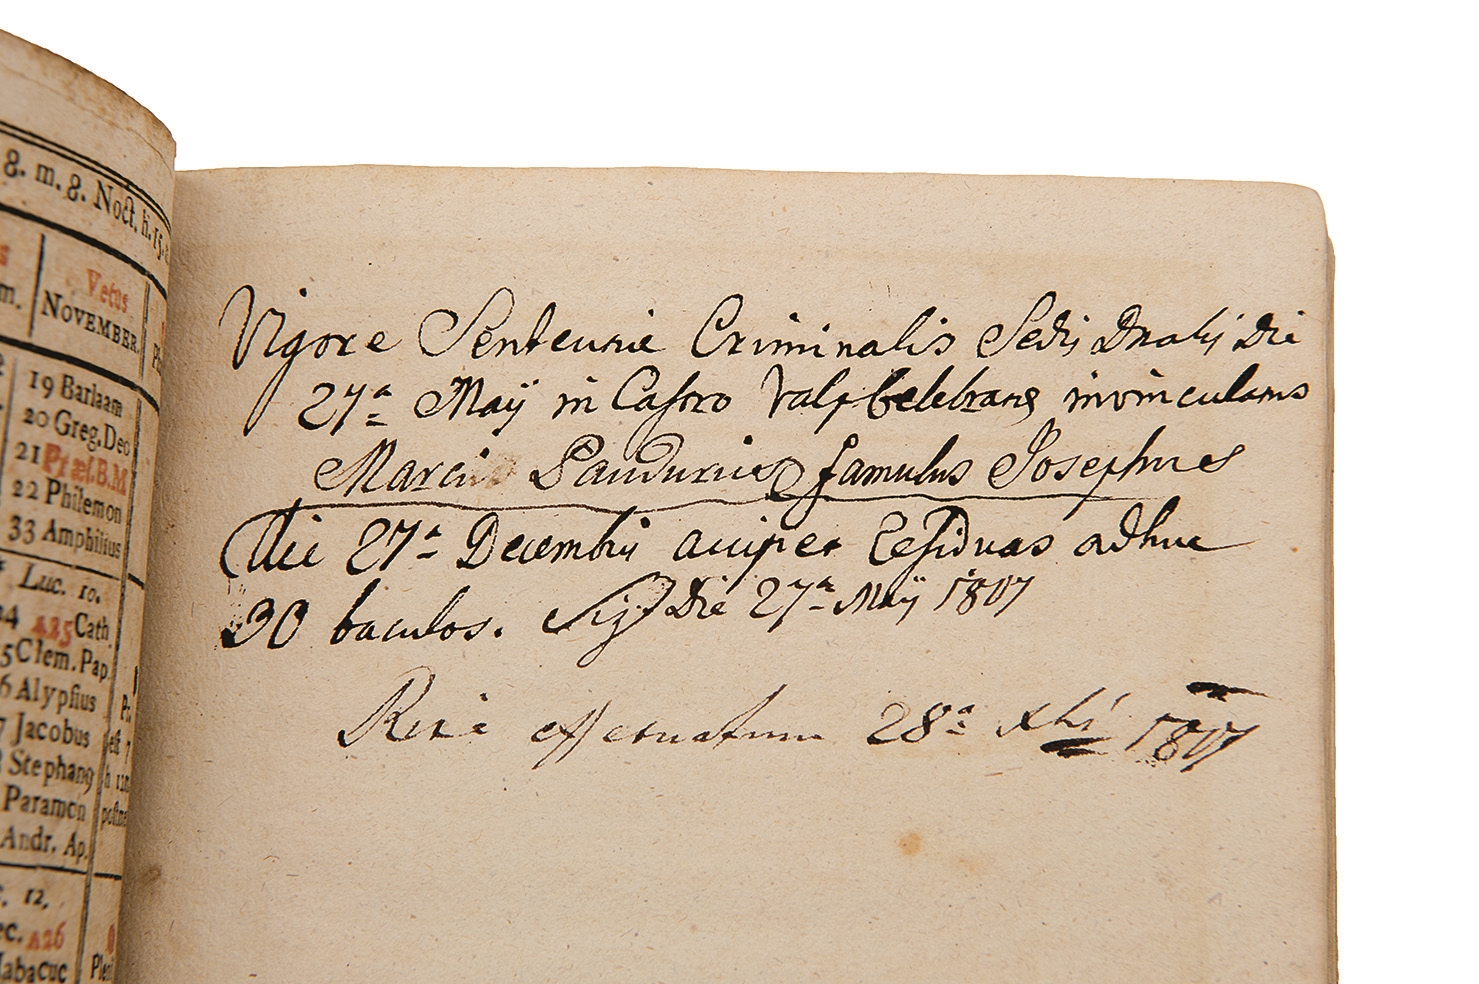 8. m. 8. Noct. h. 15.
Vetus
m. NOVEMBER.
19 Barlaam
20 Greg. Deo
21 Præs. B. M
22 Philemon
33 Amphilius
Luc. 10.
A25 Cath
5 Clem. Pap.
6 Alypsius
7 Jacobus
Stephang
Paramon
Andr. Ap.
12,
ec. A26
Habacuc
Vigore Sentencie Criminalis Sedis Dnalis Die
27a Maÿ in Castro Valp celebrans invinculams
Marcus Pandurics famulus Josephines
Die 27a Decembris accipet residuas adhuc
30 baculos. Sig. Die 27a Maÿ 1807
Rite effectuatum 28a xbi 1807